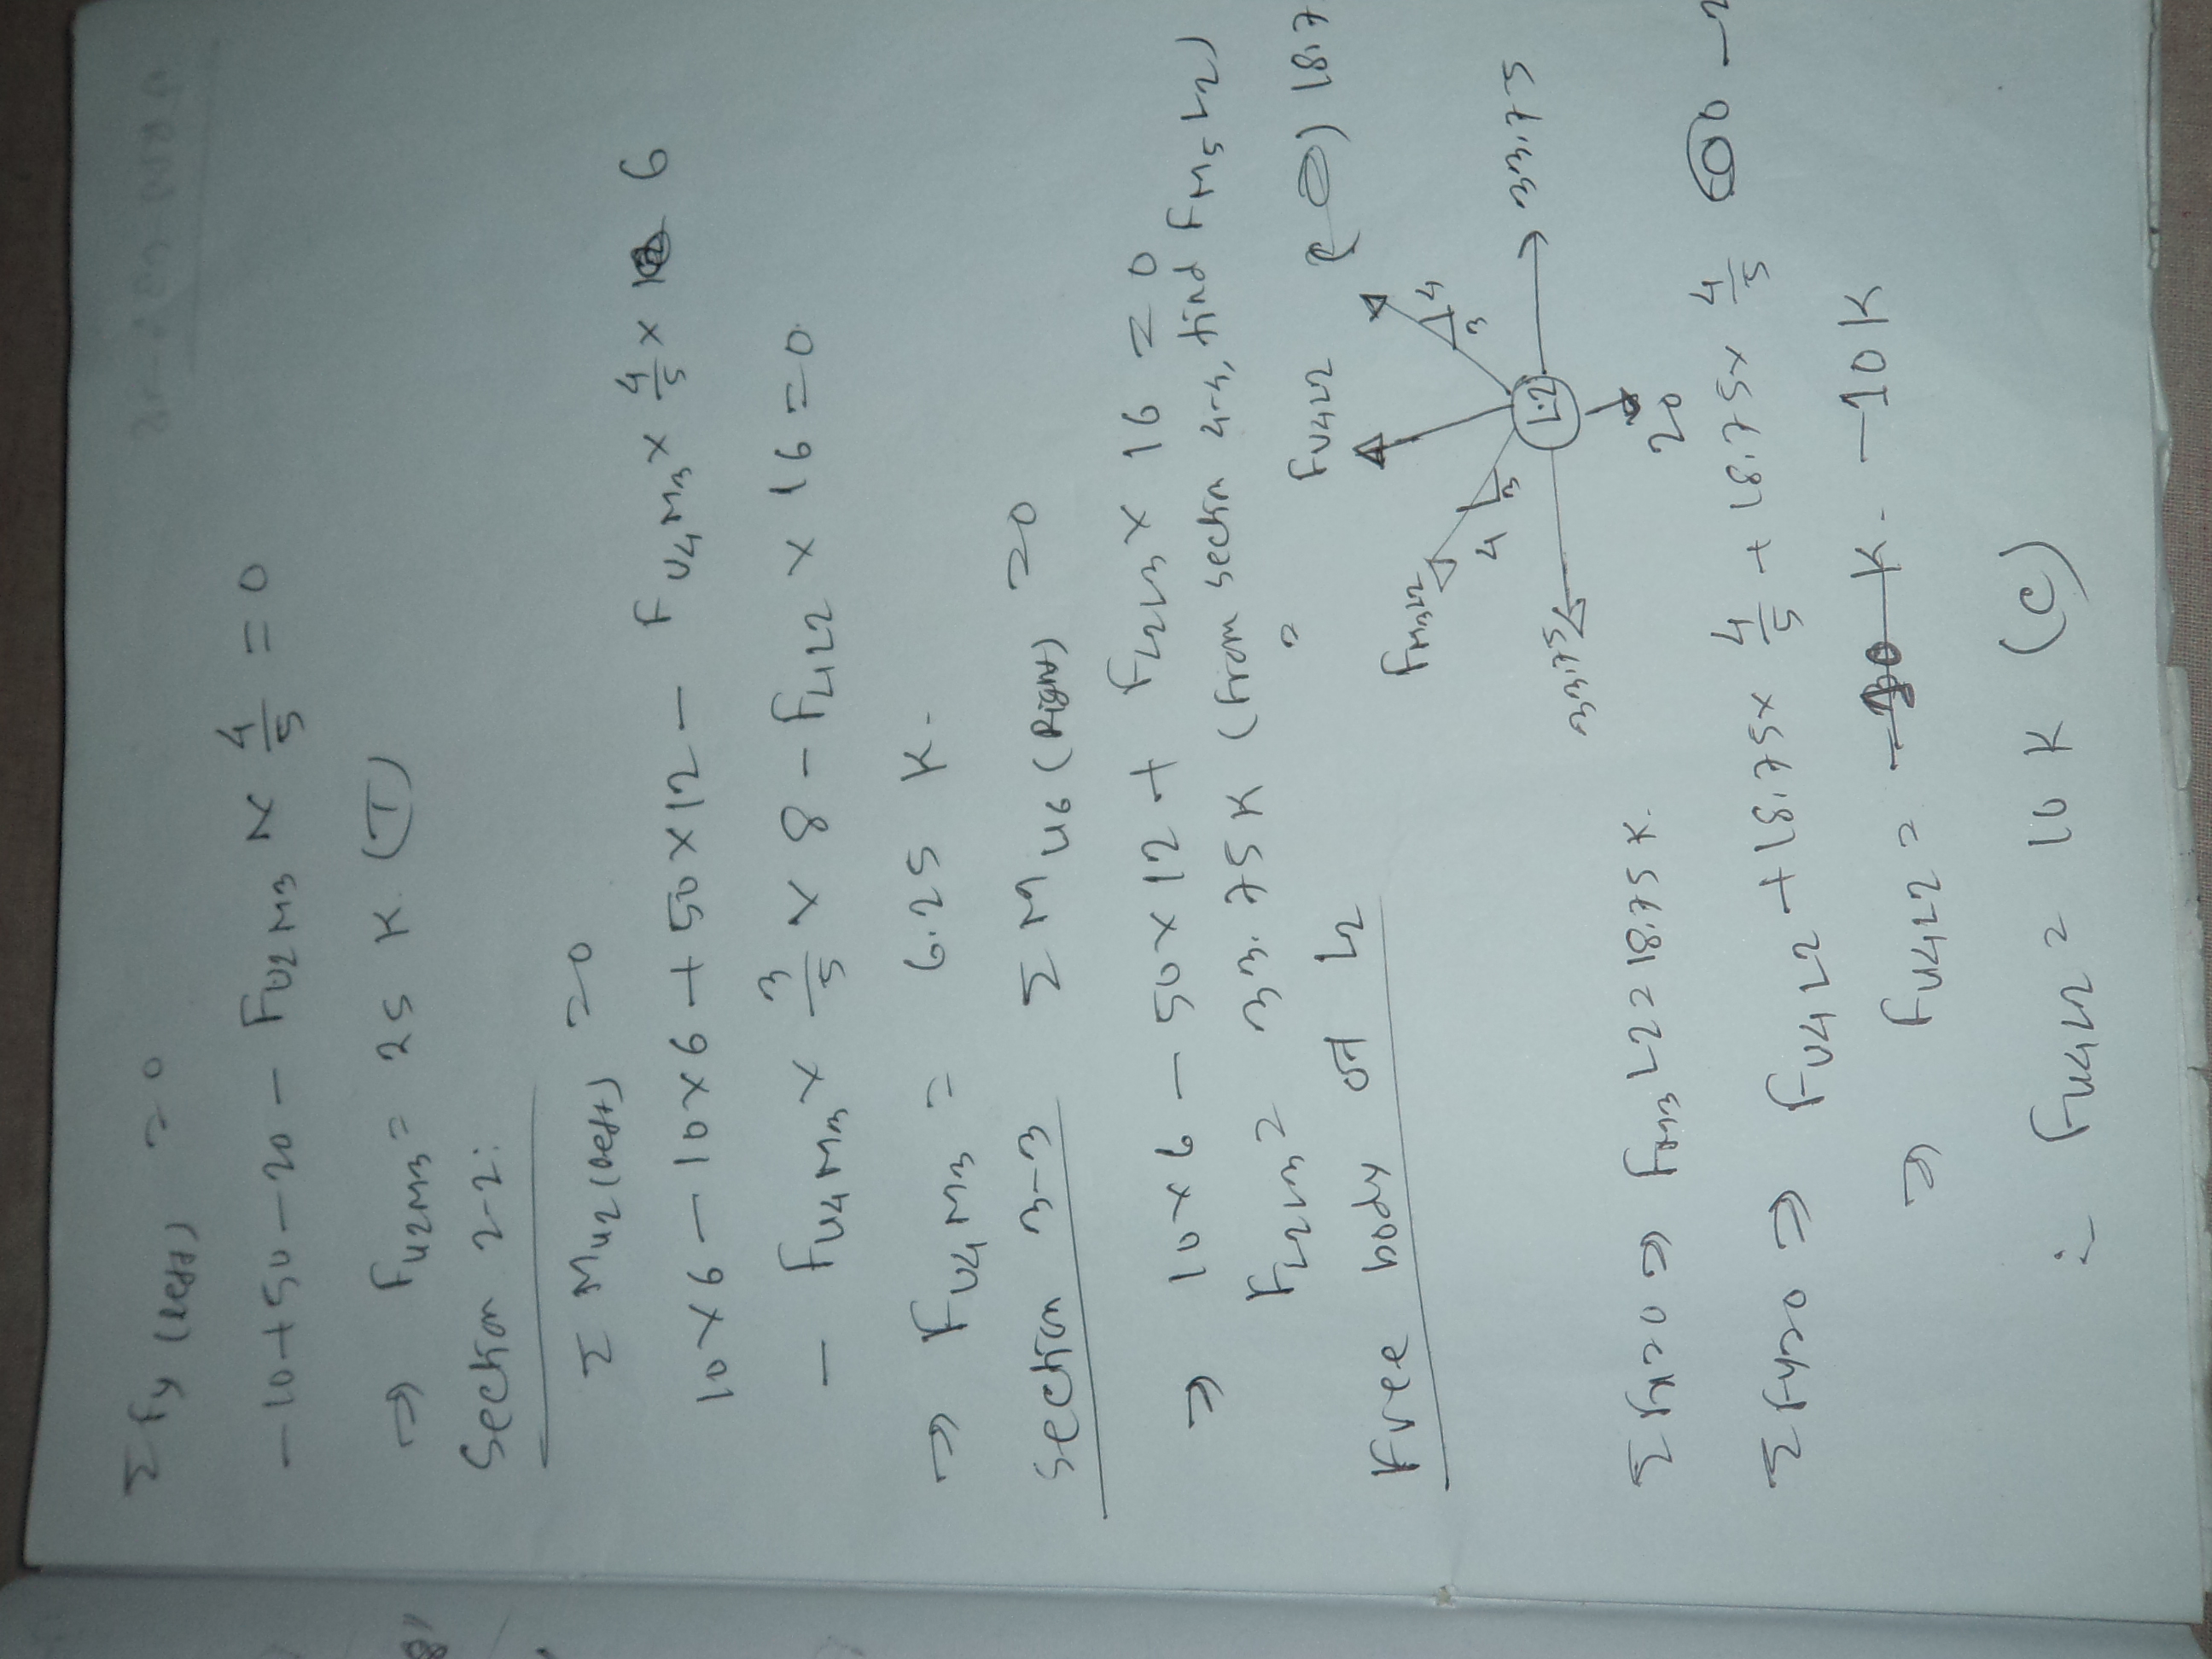 Σ Fy (left) = 0
-10+50-20 - F U2M3 × 4/5 = 0
⇒ F U2M3 = 25 K (T)
Section 2-2:
Σ M U2 (left) = 0
10×6 - 10×6 + 50×12 - F U4M3 × 4/5 × 6
- F U4M3 × 3/5 × 8 - F L1L2 × 16 = 0
⇒ F U4M3 = 6.25 K.
Section 3-3 Σ M U6 (Right) = 0
⇒ 10×6 - 50×12 + F L2L3 × 16 = 0
F L2L3 = 33.75 K (from section 4-4, find F M5L2)
Free body of L2
F U4L2
18.7
F M3L2
4
3
4
3
33.75
L2
33.75
20
Σ Fx = 0 ⇒ F M3L2 = 18.75 K.
Σ Fy = 0 ⇒ F U4L2 + 18.75 × 4/5 + 18.75 × 4/5
⇒ F U4L2 = K. -10K
∴ F U4L2 = 10 K (C)